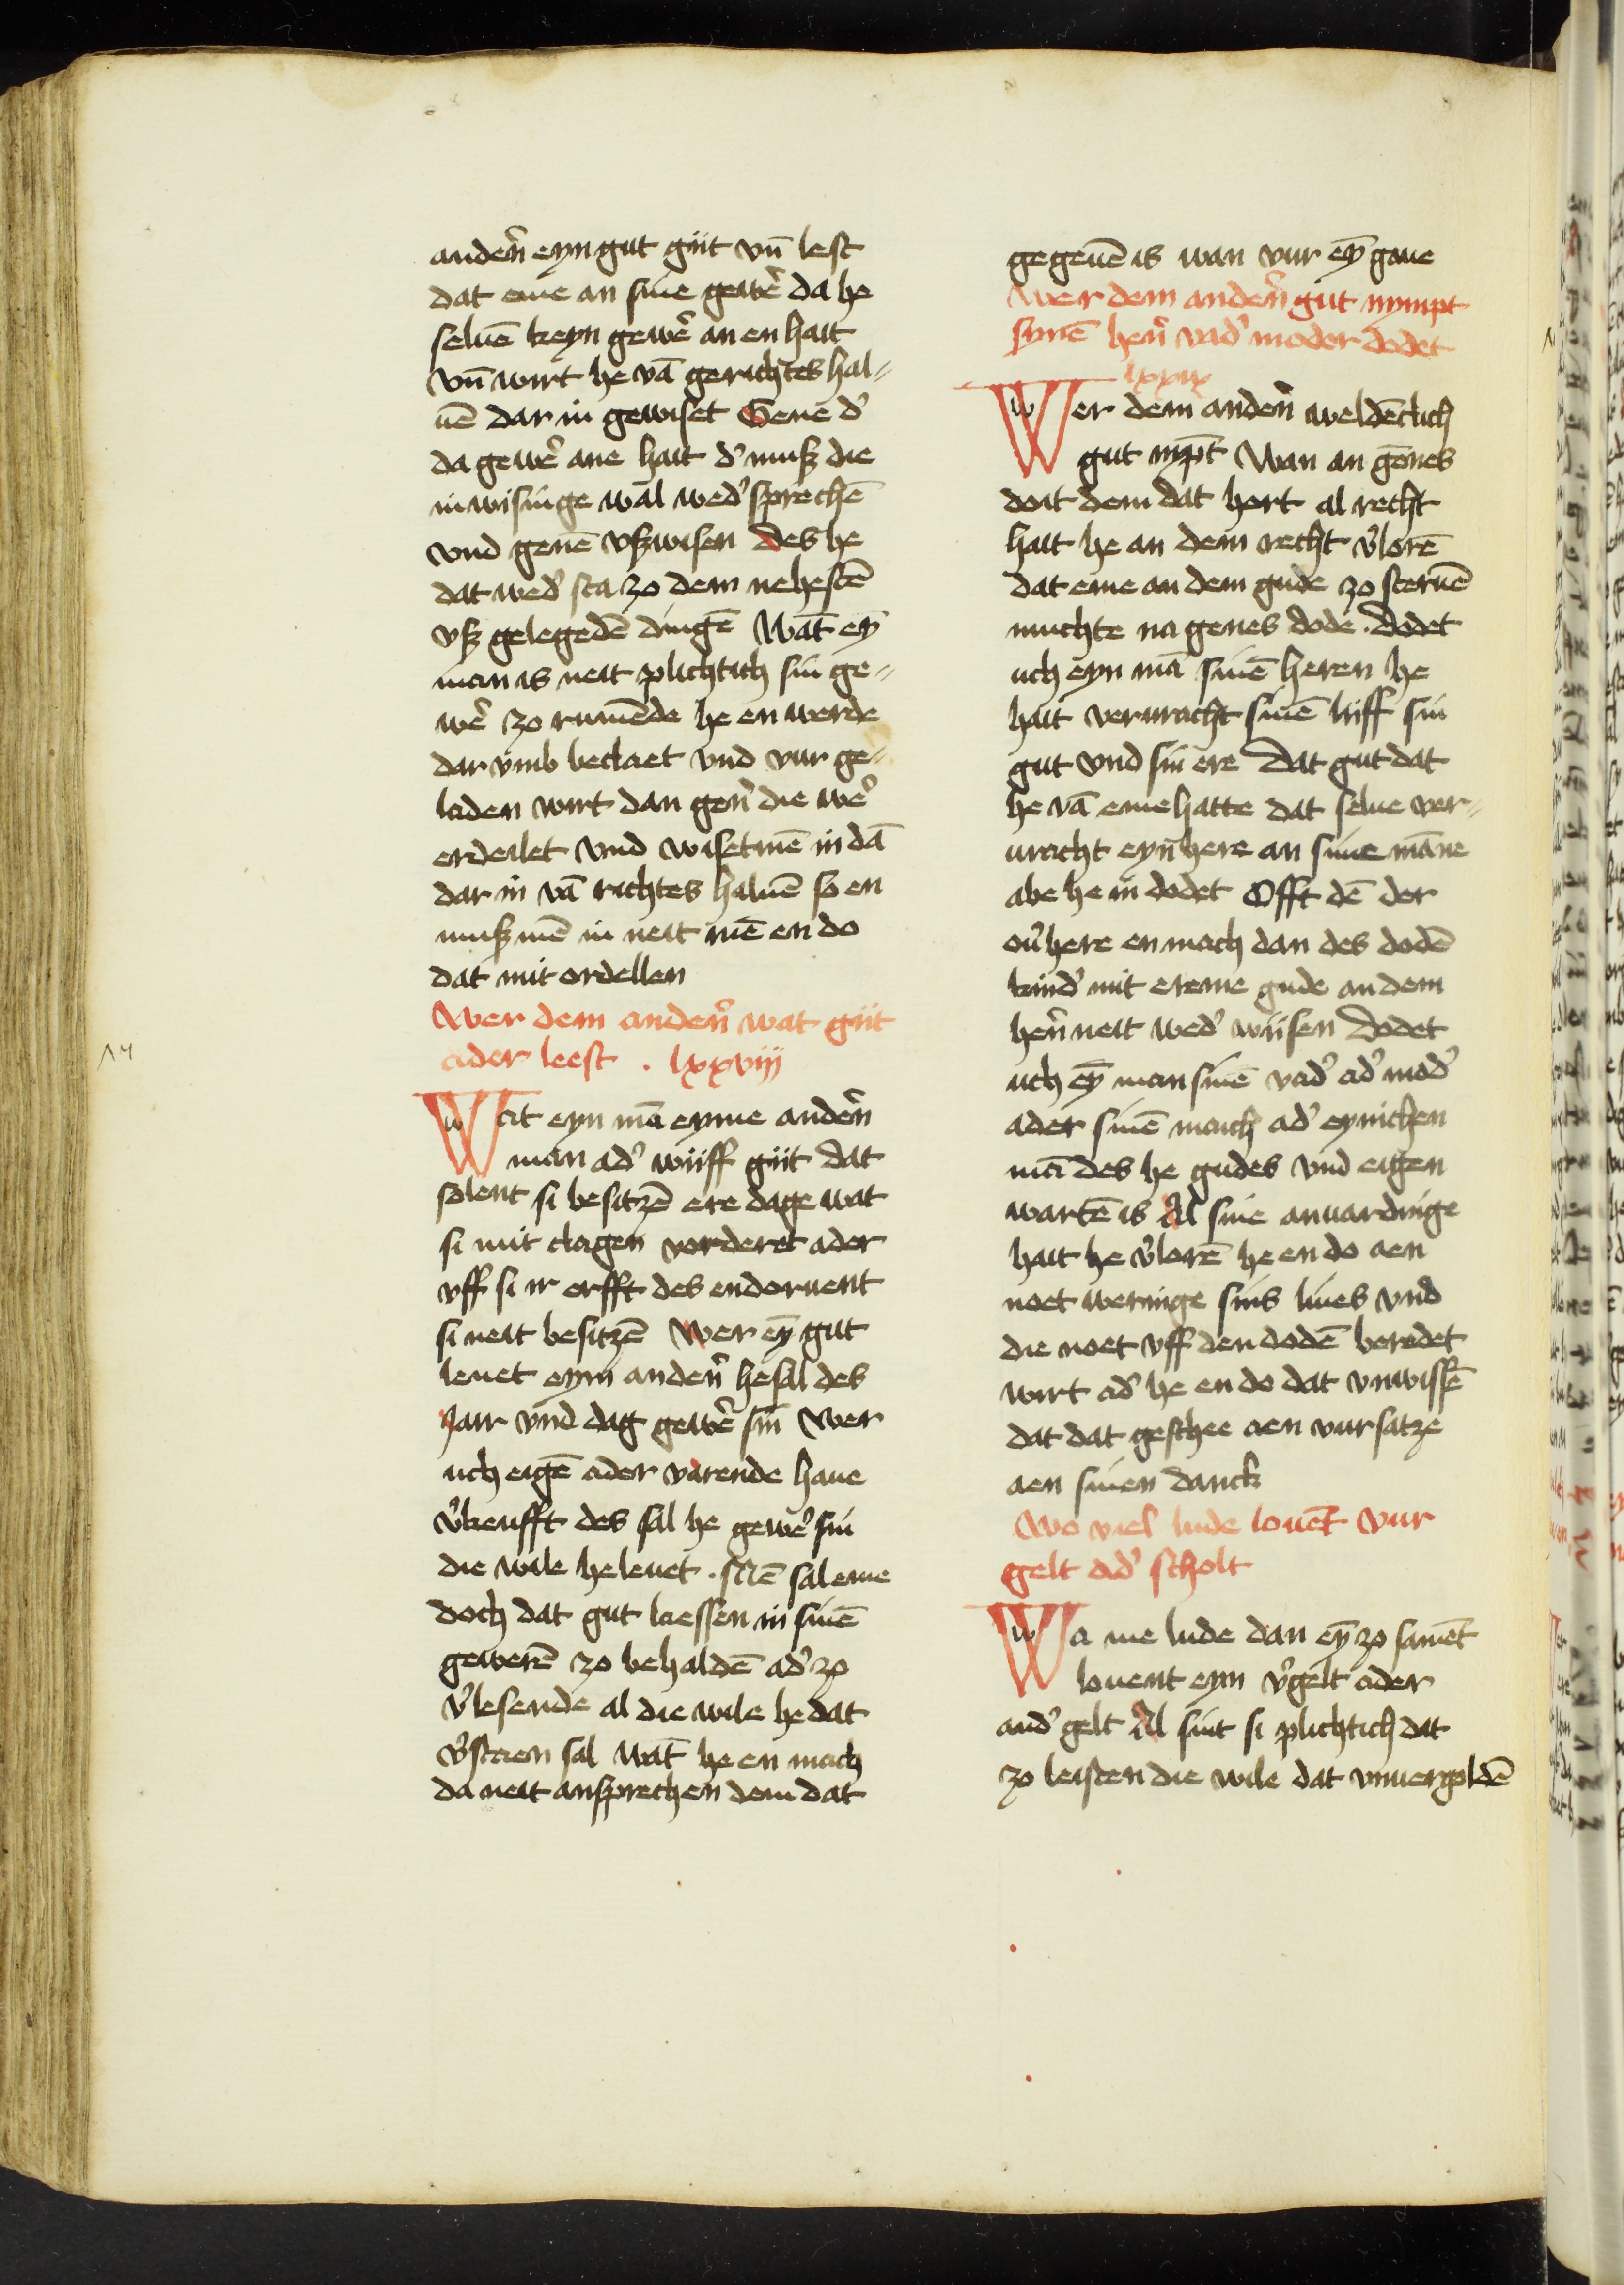 anden̄ eyn gut giit vn̄ lest
dat eme an sine gewe͛ da he
seluē keyn gewe͛ an en hait
vn̄ wirt he vā gerichtes hal⸗
uē dar in gewiset Gene d͛
da gewe͛ ane hait d͛ muß die
inwisinge wal wed͛ sprechē
vnd genē vßwisen des he
dat wed͛ sta zo dem nehestē
vß gelegedē dingē Wāt ey̅
man is neit plichtich sin ge⸗
we͛ zo rumēde he en werde
dar vmb beclaet vnd vur ge⸗
laden wirt dan gen̄ die we͛
erdeilet vnd wisetmē in dā
dar in vā richtes haluē so en
muß mē in neit mē en do
dat mit ordellen
Wer dem anden̄ wat giit
ader leest . lxxviij
Wat eyn mā eyme anden̄
man ad͛ wiiff giit dat
solent si besitzē ere dage wat
si mit clagen vorderet ader
vff si ir erfft des endoruent
si neit besitzē Wer ey̅ gut
leuet eym anden̄ he sal des
Jair vnd dag gewe͛ sin Wer
uch eigē ader varende haue
v͛keufft des sal he gewe͛ sin
die wile he leuet . Mē sal eme
doch dat gut laessen in sinē
gewerē zo behaldē ad͛ zo
v͛lesende al die wile he dat
v͛staen sal wāt he en mach
da neit ansprechen dem dat
gegeuē is wan vur ey̅ gaue
Wer dem anden̄ gut nympt
synē hen̄ vad͛ moder dodet
lxxix
Wer dem anden̄ weldēclich
gut nyp̄t Wan an gēnes
doit dem dat hort al recht
hait he an dem recht v͛lorē
dat eme an dem gude zo steruē
muchte na genes dode . dodet
uch eyn mā sinē heren he
hait verwracht sinē liiff sin
gut vnd sin ere Dat gut dat
he vā eme hatte dat selue ver⸗
wracht eyn here an sime māne
abe he in dodet Offt dē der
ou͛here en mach dan des dodē
kind͛ mit ereme gude an dem
hen̄ neit wed͛ wiisen Dodet
uch ey̅ man sinē vad͛ ad͛ mod͛
ader sinē maich ad͛ eynichen
mā des he gudes vnd eigen
wartē is Al sine anwardinge
hait he v͛lorē he en do aen
noet weringe sins liues vnd
die noet vff den dodē beredet
wirt ad͛ he en do dat vnwissē
dat dat geschee aen vursatze
aen sinen danck
Wo viel lude louēt vur
gelt ad͛ scholt
Wa me lude dan ey̅ zo samēt
louent eyn v͛gelt ader
and͛ gelt Al sint si plichtich dat
zo leisten die wile dat vnuergoldē